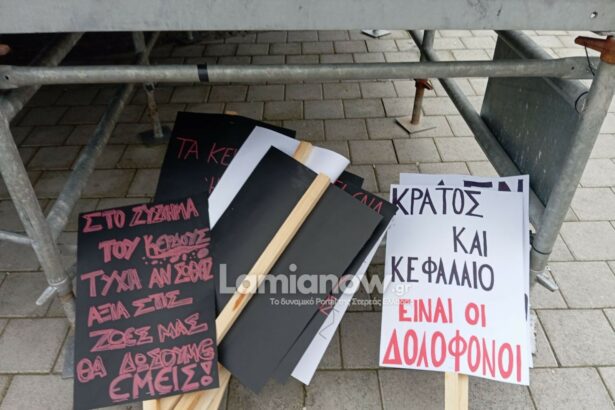 ΤΑ ΚΕ
ΣΤΟ ΖΥΣΗΜΑ
ΤΟΥ ΚΕΡΔΟΥΣ
ΤΥΧΗ ΑΝ ΣΩΘΕΙΣ
ΑΞΙΑ ΣΤΙΣ
ΖΩΕΣ ΜΑΣ
ΘΑ ΔΩΣΟΥΜΕ
ΕΜΕΙΣ!
Lamianow.gr
Το δυναμικό Portal της Στερεάς Ελλάδας
ΚΡΑΤΟΣ
ΚΑΙ
ΚΕΦΑΛΑΙΟ
ΕΙΝΑΙ ΟΙ
ΔΟΛΟΦΟΝΟΙ